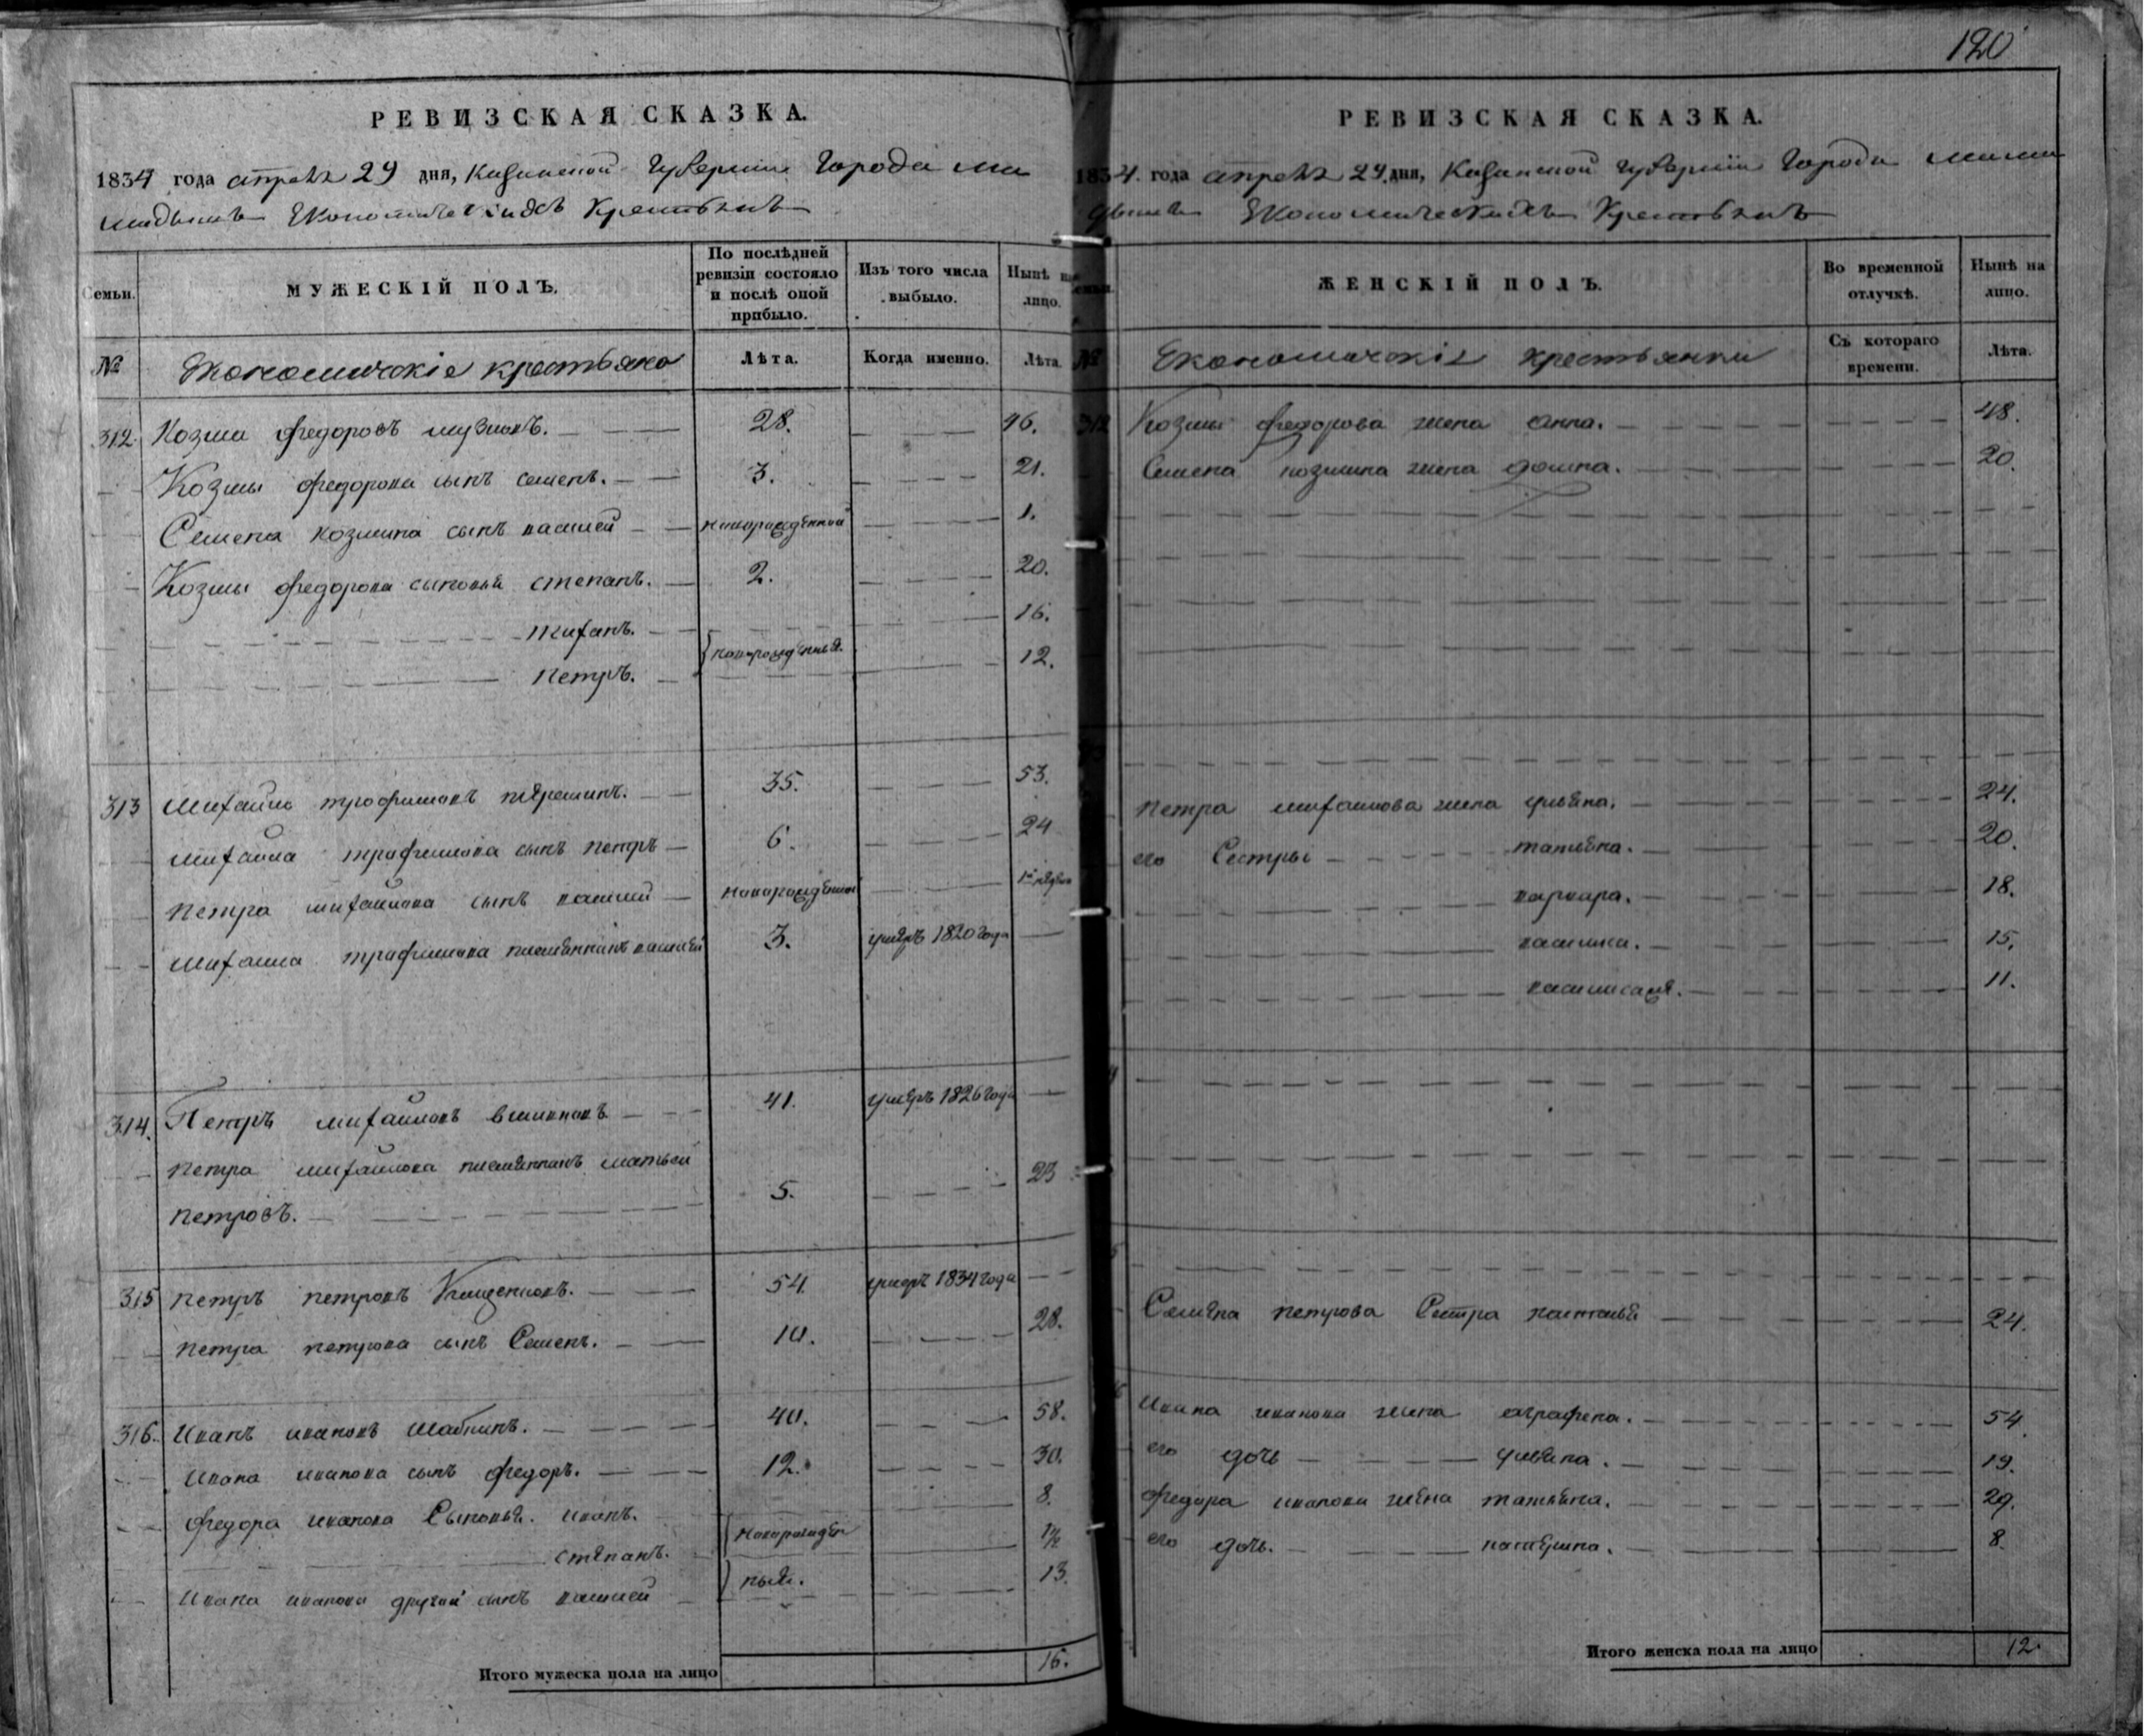 120
РЕВИЗСКАЯ СКАЗКА.
1834 года апреля 29 дня, Казанской Губернии Города ма
мадыша Економическихъ Крестьянъ
Семьи.
МУЖЕСКІЙ ПОЛЪ.
По послѣдней
ревизіи состояло
и послѣ оной
прибыло.
Изъ того числа
выбыло.
Нынѣ на
лицо.
№
Экономическіе крестьяне
Лѣта.
Когда именно.
Лѣта.
312 Козма федоровъ 28. 46.
Козмы федорова сынъ семенъ. 3. 21.
Семена козмина сынъ василей новорожденной 1.
Козмы федорова сыновья степанъ. 2. 20.
16.
Петръ. новорожденныя. 12.
313 михайло трофимовъ 35. 53.
михайла трафимова сынъ петръ 6. 24
петра михайлова сынъ василий новорожденной
михайла трафимова племянникъ василей 3. умеръ 1820 года
314. Петръ михайловъ 41. умеръ 1826 года
петра михайлова племянникъ матвей
петровъ. 5. 23
315 петръ петровъ 54. умеръ 1834 года
петра петрова сынъ Семенъ. 10. 28.
316. Иванъ ивановъ 40. 58.
ивана иванова сынъ федоръ. 12. 30.
федора иванова Сыновья. иванъ. 8.
степанъ. новорожден
ивана иванова другой сынъ василей ныя. 13.
Итого мужеска пола на лицо 16.
РЕВИЗСКАЯ СКАЗКА.
1834. года апреля 29 дня, Казанской губерніи Города мама
дыша Економическихъ Крестьянъ
Семьи.
ЖЕНСКІЙ ПОЛЪ.
Во временной
отлучкѣ.
Нынѣ на
лицо.
№
Економическіе крестьянки
Съ котораго
времени.
Лѣта.
312 Козмы федорова жена анна. 48.
Семена козмина жена домна. 20.
петра михайлова жена ульяна. 24.
его Сестры татьяна. 20.
варвара. 18.
15.
василиса. 11.
Семена петрова Сестра наталья 24.
Ивана иванова жена аграфена. 54.
его дочь ульяна. 19.
федора иванова жена татьяна. 29.
его дочь. катерина. 8.
Итого женска пола на лицо 12.